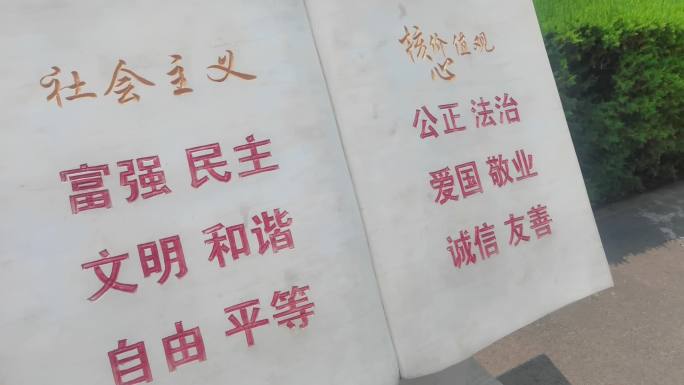 社会主义
富强 民主
文明 和谐
自由 平等
核心价值观
公正 法治
爱国 敬业
诚信 友善